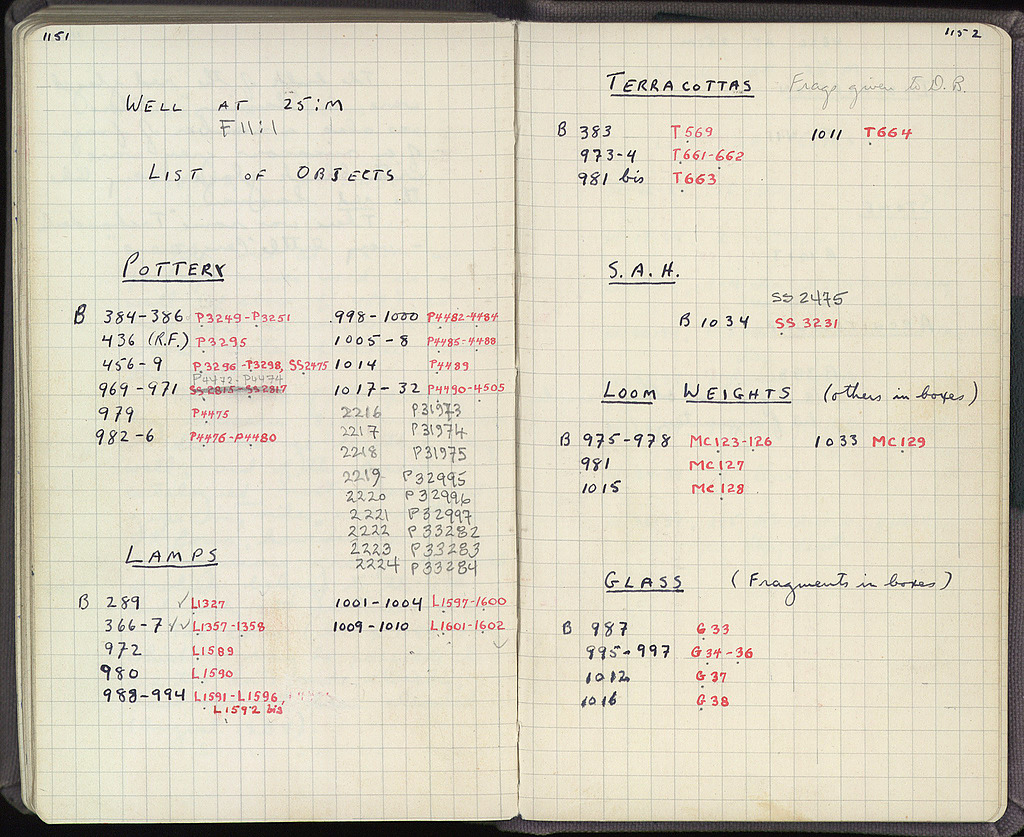 1151
WELL AT 25:M
F 11:1
LIST OF OBJECTS
POTTERY
B 384-386 P3249-P3251
436 (R.F.) P3295
456-9 P3296-P3298, SS2475
P4472-P4474
969-971 SS2815-SS2817
979 P4475
982-6 P4476-P4480
998-1000 P4482-4484
1005-8 P4485-4488
1014 P4489
1017-32 P4490-4505
2216 P31973
2217 P31974
2218 P31975
2219 P32995
2220 P32996
2221 P32997
2222 P33282
2223 P33283
2224 P33284
LAMPS
B 289 ✓ L1327
366-7 ✓✓ L1357-1358
972 L1589
980 L1590
988-994 L1591-L1596,
L1592 bis
1001-1004 L1597-1600
1009-1010 L1601-1602
1152
TERRACOTTAS Frags given to D.B.
B 383 T569 1011 T664
973-4 T661-662
981 bis T663
S.A.H.
SS 2475
B 1034 SS 3231
LOOM WEIGHTS (others in boxes)
B 975-978 MC123-126 1033 MC129
981 MC127
1015 MC128
GLASS (Fragments in boxes)
B 987 G 33
995-997 G 34-36
1012 G 37
1016 G 38